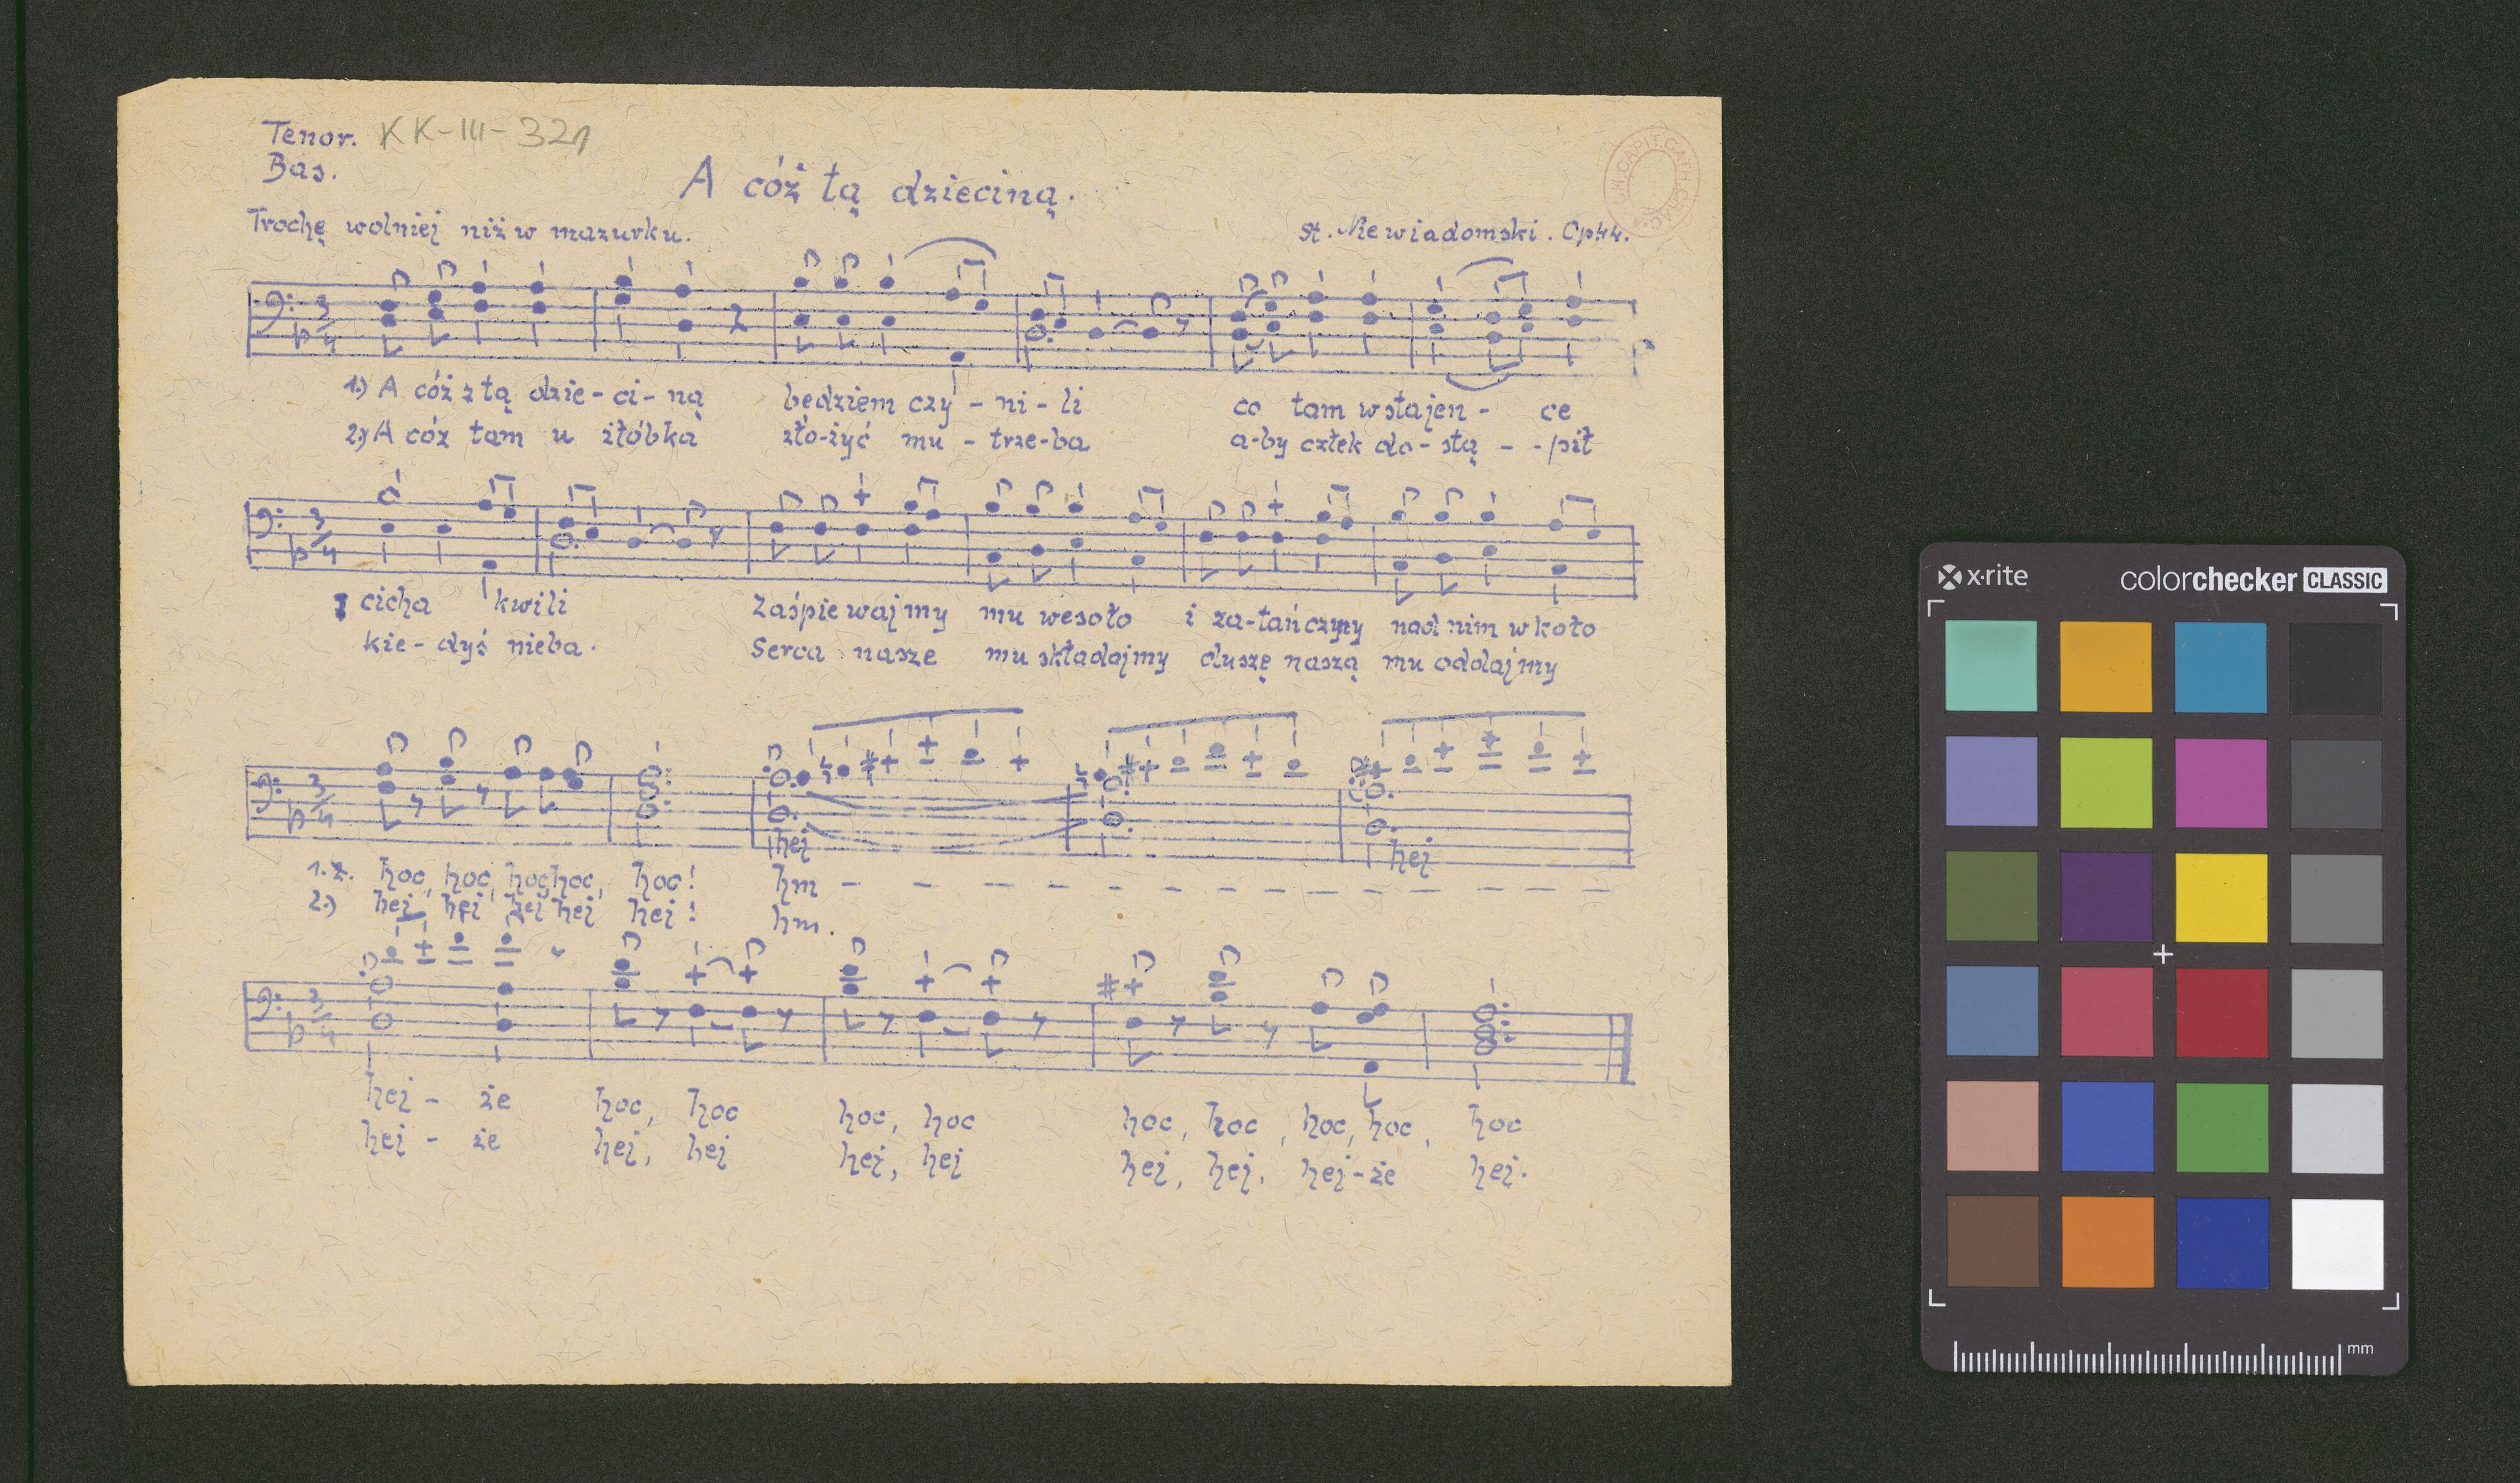 Tenor. KK-III-321
Bas.
A cóż tą dzieciną.
Trochę wolniej niż w mazurku.
St. Niewiadomski. Op44.
1.) A cóż z tą dzie-ci-ną będziem czy-ni-li co tam w stajen- ce
2.) A cóż tam u żłóbka zło-żyć mu-trze-ba a-by człek do-stą--pił
cicha kwili Zaśpiewajmy mu wesoło i za-tańczmy nad nim w koło
kie-dyś nieba. Serca nasze mu składajmy duszę naszą mu oddajmy
hej hej
1. hoc, hoc, hoc, hoc, hoc! hm – – – – – – – – – – – –
2.) hej, hej hej hej hej! hm.
hej- że hoc, hoc hoc, hoc hoc, hoc, hoc, hoc, hoc
hej- że hej, hej hej, hej hej, hej, hej-że hej.
x·rite
colorchecker CLASSIC
mm